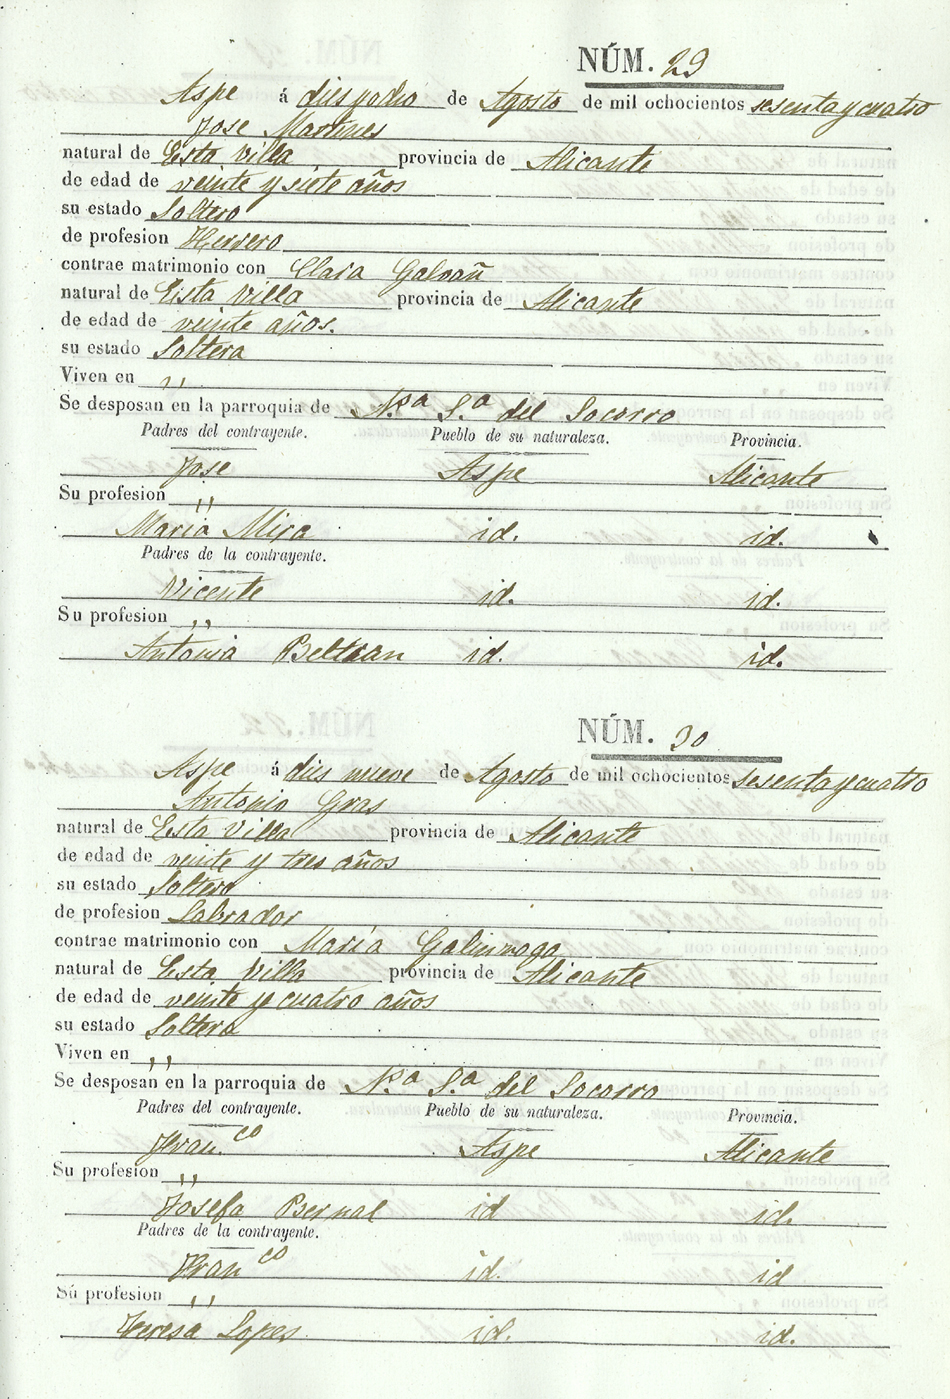 NÚM. 29
Aspe á dies y ocho de Agosto de mil ochocientos sesenta y cuatro
Jose Martines
natural de Esta Villa provincia de Alicante
de edad de veinte y siete años
su estado Soltero
de profesion Herrero
contrae matrimonio con Clara Galvañ
natural de Esta Villa provincia de Alicante
de edad de veinte años.
su estado Soltera
Viven en ,,
Se desposan en la parroquia de N.ª S.ª del Socorro
Padres del contrayente. Pueblo de su naturaleza. Provincia.
Jose Aspe Alicante
Su profesion ,,
Maria Mira id. id.
Padres de la contrayente.
Vicente id. id.
Su profesion ,,
Antonia Beltran id. id.
NÚM. 30
Aspe á dies nueve de Agosto de mil ochocientos sesenta y cuatro
Antonio Gras
natural de Esta Villa provincia de Alicante
de edad de veinte y tres años
su estado Soltero
de profesion Labrador
contrae matrimonio con María
natural de Esta Villa provincia de Alicante
de edad de veinte y cuatro años
su estado Soltera
Viven en ,,
Se desposan en la parroquia de N.ª S.ª del Socorro
Padres del contrayente. Pueblo de su naturaleza. Provincia.
Fran.co Aspe Alicante
Su profesion ,,
Josefa Bernal id id.
Padres de la contrayente.
Fran co id. id
Su profesion ,,
Teresa Lopes id. id.